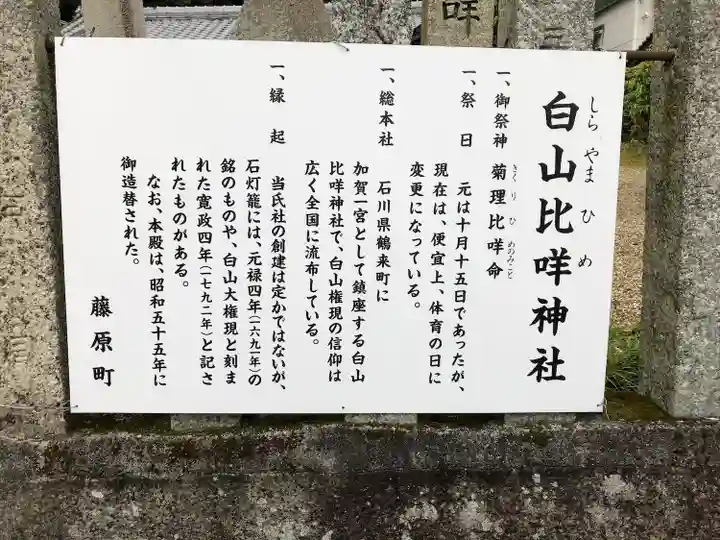 白山比咩神社
しらやまひめ
一、御祭神 菊理比咩命
きくりひめのみこと
一、祭日 元は十月十五日であったが、
現在は、便宜上、体育の日に
変更になっている。
一、総本社 石川県鶴来町に
加賀一宮として鎮座する白山
比咩神社で、白山権現の信仰は
広く全国に流布している。
一、縁起 当氏社の創建は定かではないが、
石灯籠には、元禄四年(一六九一年)の
銘のものや、白山大権現と刻ま
れた寛政四年(一七九二年)と記さ
れたものがある。
なお、本殿は、昭和五十五年に
御造替された。
藤原町
咩